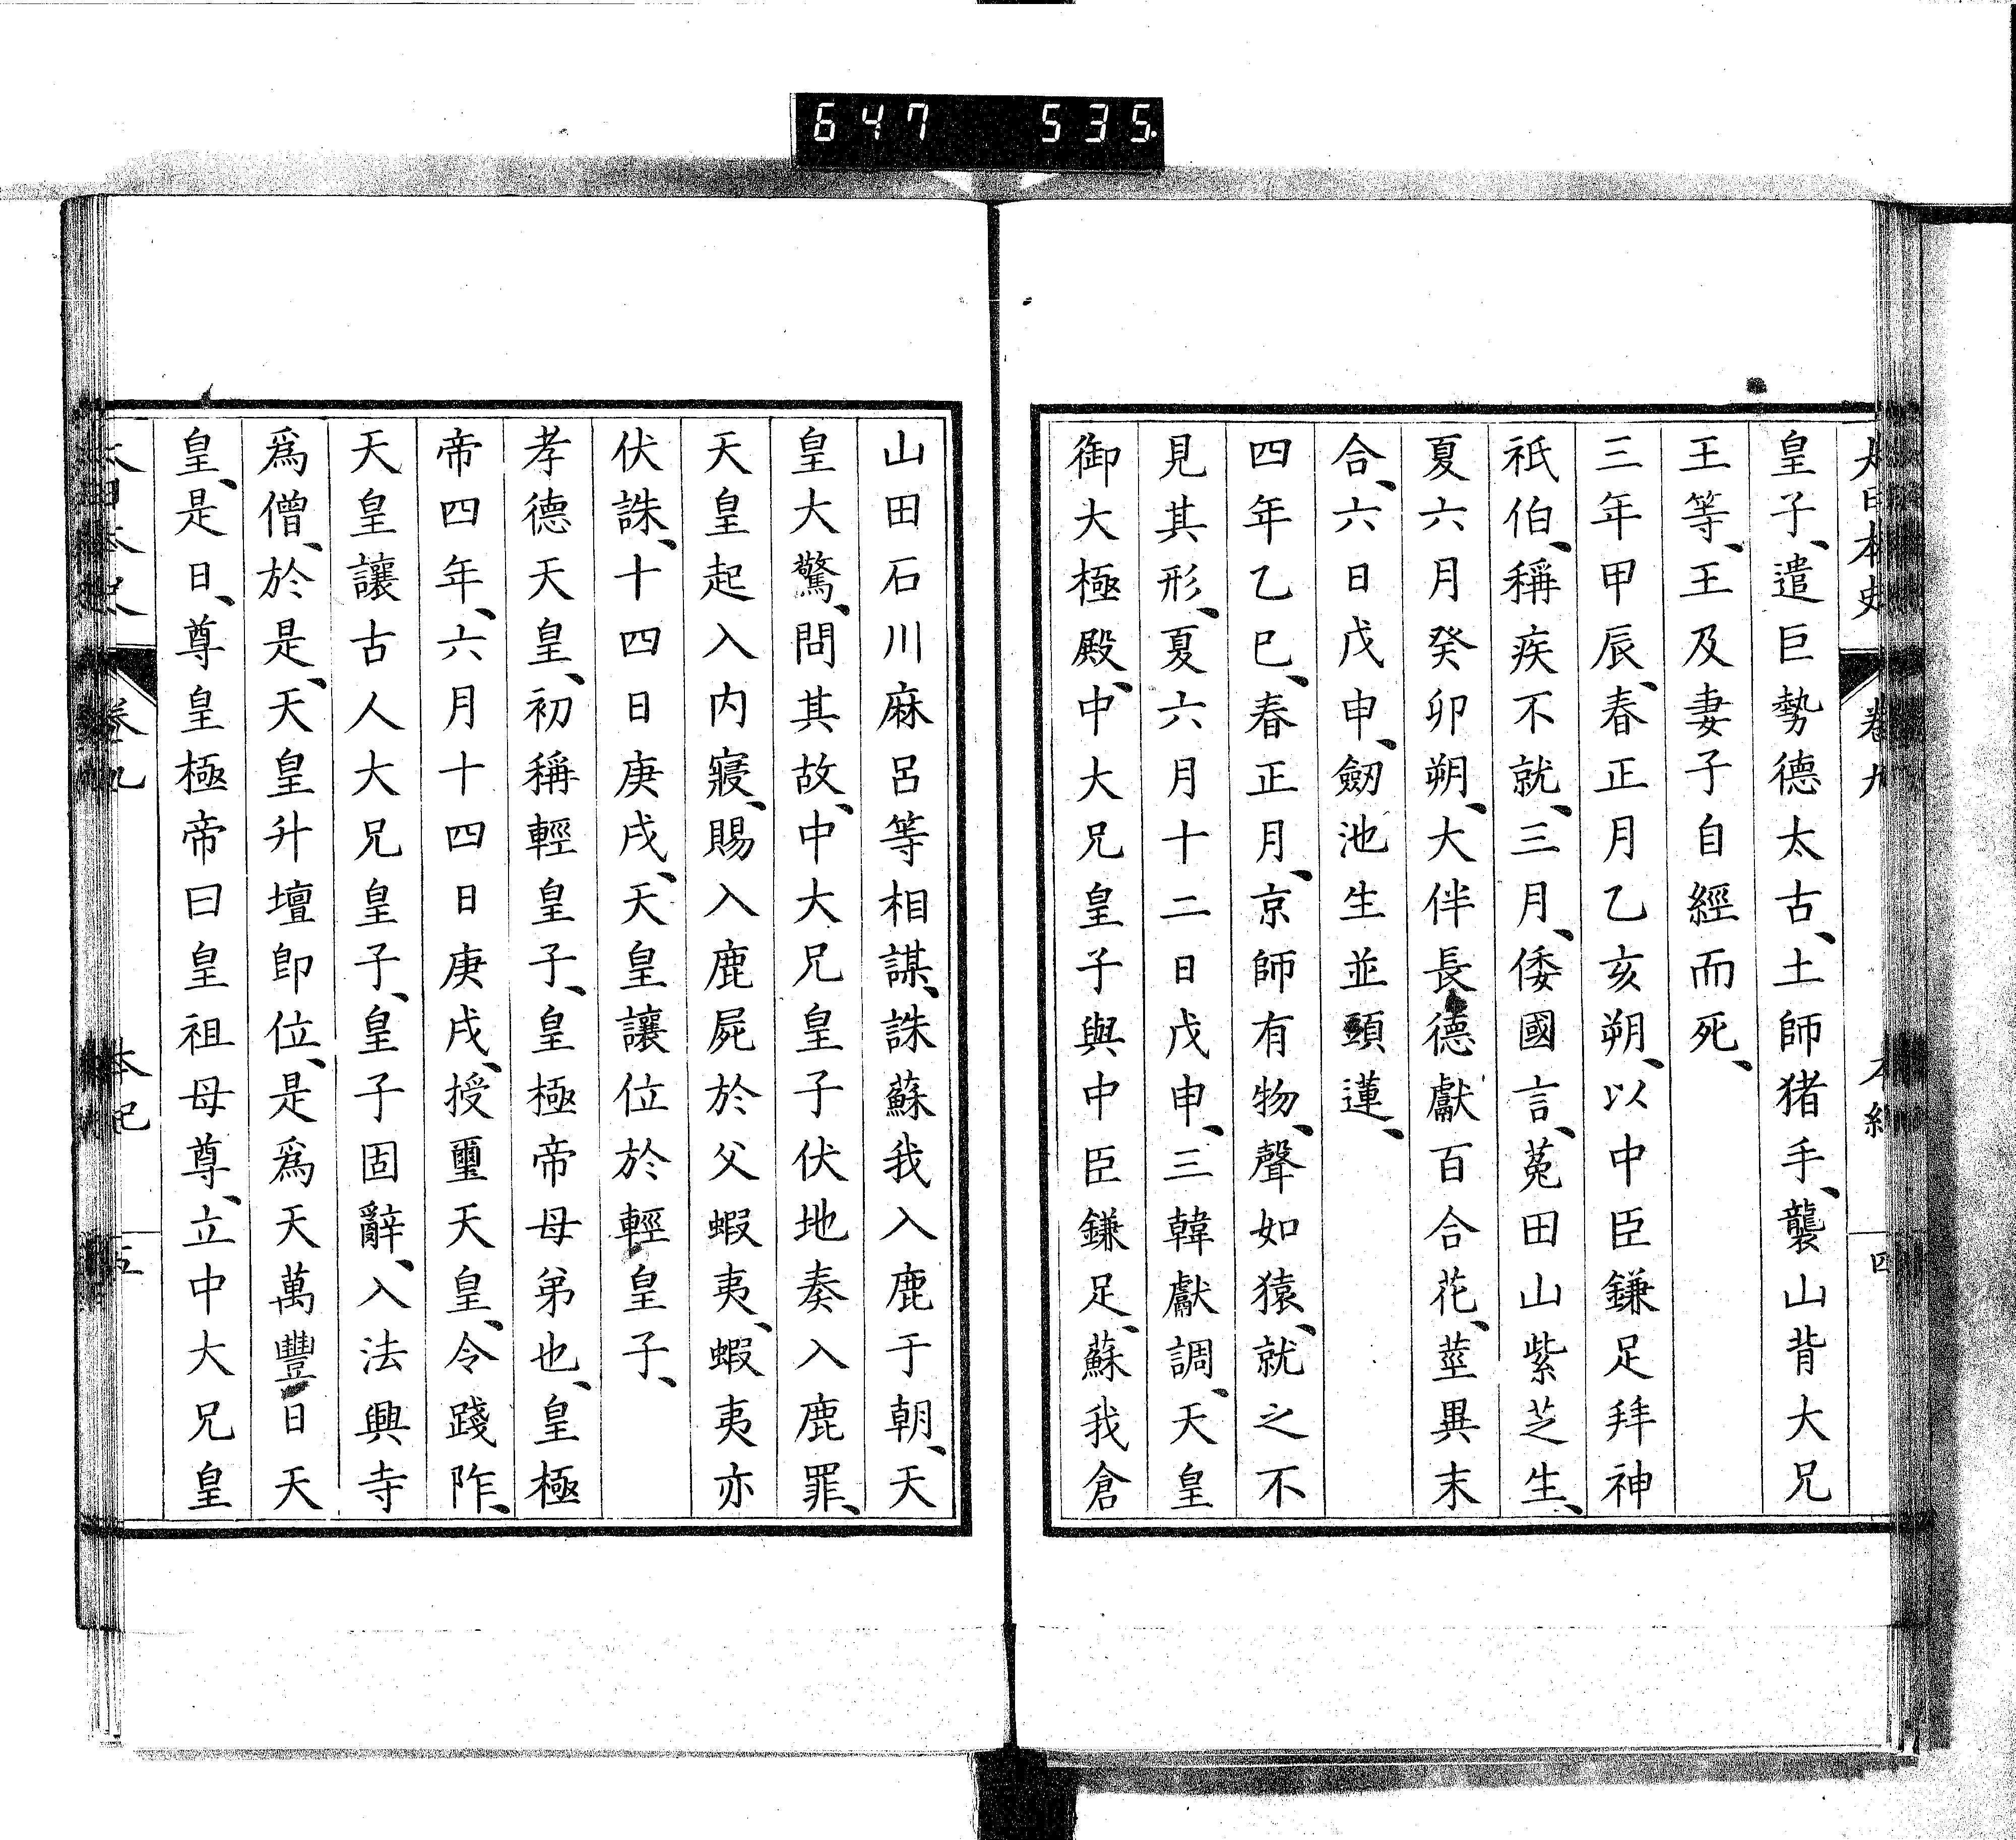 647 535
大日本史 卷九 本紀 四
皇子、遣巨勢德太古、土師猪手、襲山背大兄
王等、王及妻子自經而死、
三年甲辰、春正月乙亥朔、以中臣鎌足拜神
祇伯、稱疾不就、三月、倭國言、菟田山紫芝生、
夏六月癸卯朔、大伴長德獻百合花、莖異末
合、六日戊申、劒池生並頭蓮、
四年乙巳、春正月、京師有物、聲如猿、就之不
見其形、夏六月十二日戊申、三韓獻調、天皇
御大極殿、中大兄皇子與中臣鎌足、蘇我倉
山田石川麻呂等相謀、誅蘇我入鹿于朝、天
皇大驚、問其故、中大兄皇子伏地奏入鹿罪、
天皇起入内寢、賜入鹿屍於父蝦夷、蝦夷亦
伏誅、十四日庚戌、天皇讓位於輕皇子、
孝德天皇、初稱輕皇子、皇極帝母弟也、皇極
帝四年、六月十四日庚戌、授璽天皇、令踐阼、
天皇讓古人大兄皇子、皇子固辭、入法興寺
爲僧、於是、天皇升壇卽位、是爲天萬豐日天
皇、是日、尊皇極帝曰皇祖母尊、立中大兄皇
大日本史 卷九 本紀 五